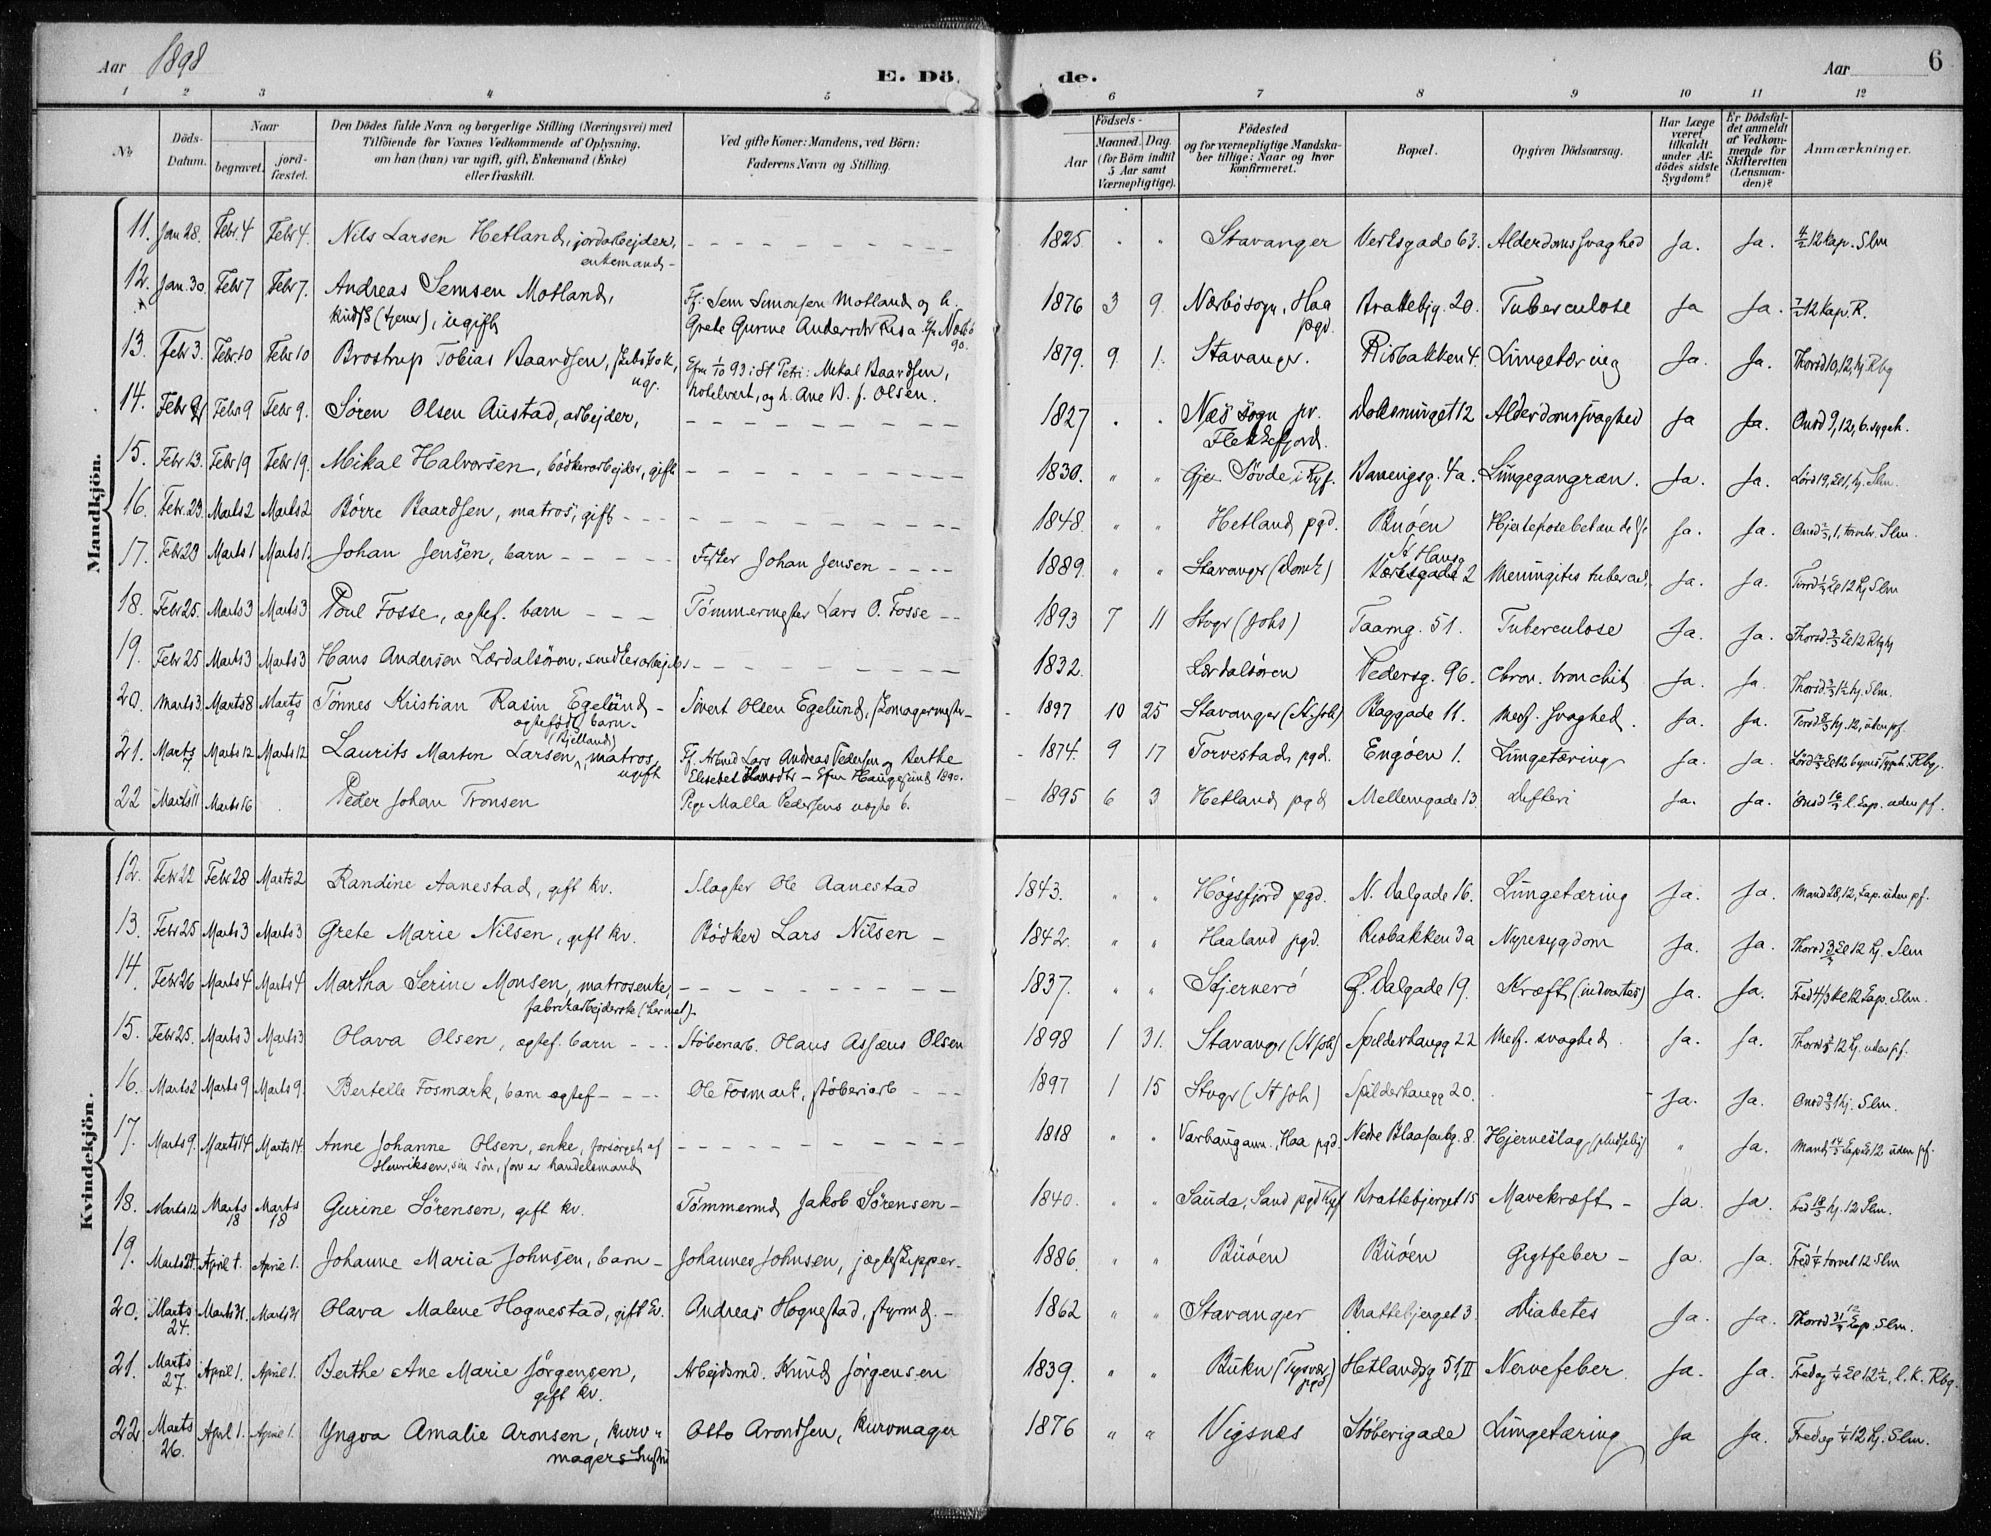 Aar 1898
E. Dö de.
Aar
6
1 2 3 4 5 6 7 8 9 10 11 12
No.
Döds-Datum.
Naar
begravet.
jord-fæstet.
Den Dödes fulde Navn og borgerlige Stilling (Næringsvei) med
Tilföiende for Voxnes Vedkommende af Oplysning,
om han (hun) var ugift, gift, Enkemand (Enke)
eller fraskilt.
Ved gifte Koner: Mandens, ved Börn:
Faderens Navn og Stilling.
Födsels-
Aar
Maaned.
Dag.
(for Börn indtil
5 Aar samt
Værnepligtige).
Födested
og for værnepligtige Mandska-
ber tillige: Naar og hvor
konfirmeret.
Bopæl.
Opgiven Dödsaarsag.
Har Læge
været
tilkaldt
under Af-
dödes sidste
Sygdom?
Er Dödsfal-
det anmeldt
af Vedkom-
mende for
Skifteretten
(Lensman-
den)?
Anmærkninger.
Mandkjön.
11. Jan 28. Febr. 4 Febr 4. Nils Larsen Hetland, jordarbejder, 1825 " " Stavanger Verksgade 63. Alderdomssvaghed Ja. Ja. 4/2 12 kap. Slm
enkemand
12. Jan. 30. Febr 7 Febr 7. Andreas Semsen Motland, Ff: Sem Simonsen Motland og h. 1876 3 9. Nærbø sogn, Haa Brattebjg. 20. Tuberculose Ja Ja. 7/2 12 kap. R.
kudsk (tjener), ugift Grete Gurine Andersdtr Risa. Nærbø 90. pgd.
13. Febr 3. Febr. 10 Febr 10 Brostrup Tobias Baardsen, ug. Cfm 1/10 93 i St Petri: Mikal Baardsen, 1879. 9 1. Stavanger. Risbakken 4. Lungetæring Ja. Ja. Thorsd 10, 12, kj Rbg
hotelvert, og h. Ane B. f. Olsen.
14. Febr Febr 9 Febr 9. Søren Olsen Austad, arbejder, 1827 Næs sogn pr. Flekkefjord. Dolesmuget 12 Alderdomssvaghed Ja Ja. Onsd 9, 12, 6. sygeh.
15. Febr 13. Febr 19 Febr 19. Mikal Halvorsen, bødkerarbejder, gift 1830. " " Søvde i Ryf. Lungegangræn. Ja. Ja. Lørd 19, kj. Slm.
16. Febr. 23 Marts 2 Marts 2 Børre Baardsen, matros, gift 1848. " " Hetland pgd. Buøen Ja. Ja. Slm.
17. Febr 23 Marts 1 Marts 1. Johan Jensen, barn Fisker Johan Jensen 1889. " " Stavanger (Domk) Værksgade 2 Meningitis tubercul. Ja. Ja. 12 kj Slm
18. Febr 25. Marts 3 Marts 3 Poul Fosse, ægtef. barn Tømmermester Lars O. Fosse 1893 7 11 Stvgr (Johs) Taarng. 51. Tuberculose Ja. Ja. Thorsd 3/3 kl 12
19. Febr 25 Marts 3 Marts 3 Hans Andersen Lærdalsøren, smedkerarbejder 1832. Lærdalsøren Pedersg. 96. chron. bronchit Ja. Ja. Thorsd. 3/3 kj. Slm.
20. Marts 3 Marts 8 Marts 9 Tønnes Kristian Rasin Egelund ægtefødt barn Sivert Olsen Egelund, skomagermester 1897 10 25 Stavanger (St. Joh) Baggade 11. Medf. svaghed. Ja. Ja. kj. 12, uden pf.
21. Marts 7. Marts 12 Marts 12 Laurits Martin Larsen, (Kjelland) matros ugift Ff. Arbmd Lars Andreas Pedersen og Berthe 1874. 9 17 Torvestad, pgd. Engøen 1. Lungetæring Ja. Ja. Rbg.
Elisebet Hansdtr Cfm Haugesund 1890.
22 Marts 11 Marts 16 Peder Johan Tronsen Pige Malla Pedersens uægte b. 1895 6 3 Hetland pgd Mellemgade 13. Difteri Ja. Ja. Onsd 16/3 l. kap. uden pf.
Kvindekjön.
12. Febr 22 Febr 28 Marts 2 Randine Aanestad, gift kv. Slagter Ole Aanestad 1843. " " Høgsfjord pgd. N. Dalgade 16. Lungetæring Ja. Ja. Mand 28, 12, kap. uden pf.
13. Febr 25 Marts 3 Marts 3 Grete Marie Nilsen, gift kv. Bødker Lars Nilsen 1842. " " Haaland pgd. Risbakken 3a Nyresygdom Ja. Ja. Thorsd 3/3 kl 12 kj. Slm
14. Febr 26 Marts 4 Marts 4 Martha Serine Monsen, matrosenke, 1837. " " Stjernerø Ø. Dalgade 19. Kræft (indvortes) Ja. Ja. Fred 4/3 kl 12 kap. Slm.
fabrikarbejderske (hermet).
15. Febr 25. Marts 3 Marts 3 Olava Olsen, ægtef. barn Støberiarb. Olaus Olsen 1898 1 31. Stavanger (St Joh) Spilderhaugg 22 Medf. svaghed Ja. Ja. Thorsd 3/3 12 kj. uden pf.
16. Marts 2 Marts 9 Marts 9. Bertelle Fosmark, barn ægtef Ole Fosmark, støberiarb 1897 1 15 Stvgr (St Joh) Spilderhaugg 20. Ja. Ja. Onsd 9/3 1 kj. Slm.
17. Marts 9. Marts 14 Marts 14. Anne Johanne Olsen, enke, forsørget af 1818 " " Varhaug ann., Haa pgd. Nedre Blaasenbg. 8. Hjerneslag (pludselig) " Ja. Mand 14/3 kap kl 12 uden pf.
Henriksen, sin søn, som er handelsmand
18. Marts 12 Marts 18 Marts 18 Gurine Sørensen, gift kv. Tømmermd Jakob Sørensen 1840. " " Sauda, Sand pgd Ryf Brattebjerget 15 Mavekræft Ja. Ja. Fred 18/3 kj. 12 Slm.
19. Marts 24. April 1. April 1. Johanne Maria Johnsen, barn Johannes Johnsen, jægteskipper 1886. " " Buøen Buøen Gigtfeber Ja. Ja. Fred 1/4 torvet 12 Slm
20. Marts 24. Marts 31. Marts 31 Olava Malene Hognestad, gift kv. Andreas Hognestad, styrmd. 1862 " " Stavanger Brattebjerget 3 Diabetes Ja. Ja. Thorsd 31/3 12 kap. Slm.
21. Marts 27. April 1. April 1. Berthe Ane Marie Jørgensen, gift kv. Arbejdsmd. Knud Jørgensen 1839. " " Bukn (Tysvær pgd) Hetlandsg 51, II Nervefeber Ja. Ja. Fredag 1/4 kl 12½, l. K. Rbg.
22 Marts 26. April 1. April 1. Yngva Amalie Aronsen, kurv- Otto Arondsen, kurvmager 1876 " " Vigsnæs Støberigade Lungetæring Ja Ja. Fredag 1/4 12 kj. Slm.
magers hustru